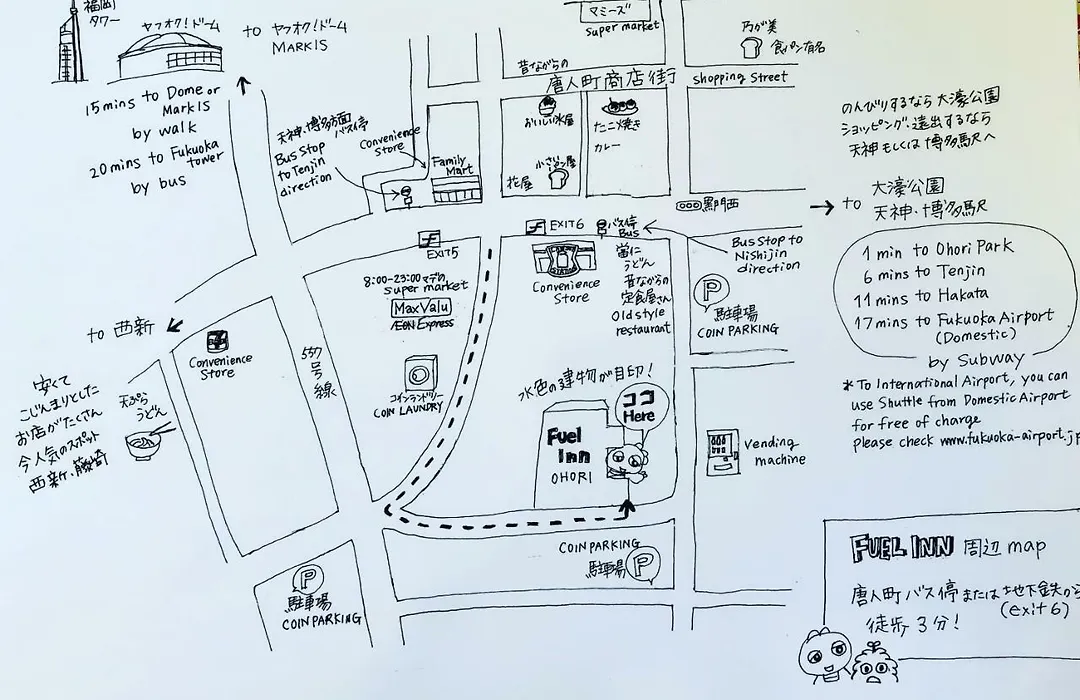 福岡
タワー
ヤフオク!ドーム
to ヤフオク!ドーム
MARKIS
マミーズ
super market
乃が美
食パン有名
昔ながらの
唐人町商店街
shopping Street
15 mins to Dome or
MarkIS
by walk
20 mins to Fukuoka
tower
by bus
天神・博多方面
バス停
Bus Stop
to Tenjin
direction
Convenience
Store
Family
Mart
おいしい氷屋
たこ焼き
カレー
花屋
小さいパン屋
のんびりするなら 大濠公園
ショッピング・遠出するなら
天神 もしくは 博多駅へ
黒門西
to
大濠公園
天神・博多駅
EXIT5
EXIT6
バス停
Bus
Bus Stop to
Nishijin
direction
1 min to Ohori Park
6 mins to Tenjin
11 mins to Hakata
17 mins to Fukuoka Airport
(Domestic)
by Subway
* To International Airport, you can
use Shuttle from Domestic Airport
for free of charge
please check www.fukuoka-airport.jp
8:00-23:00マデの
super market
MaxValu
ÆON Express
Convenience
Store
うどん
昔ながらの
定食屋さん
Old style
restaurant
P
駐車場
COIN PARKING
to 西新
Convenience
Store
号線
コインランドリー
COIN LAUNDRY
水色の建物が目印!
ココ
Here
Fuel
Inn
OHORI
Vending
machine
安くて
こじんまりとした
お店がたくさん
今人気のスポット
西新、藤崎
天ぷら
うどん
COIN PARKING
駐車場
P
P
駐車場
COIN PARKING
FUEL INN 周辺 map
唐人町 バス停 または 地下鉄から
(exit 6)
徒歩 3分!